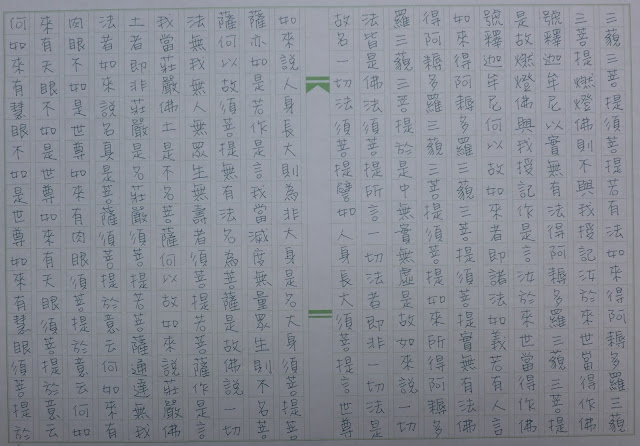 三藐三菩提須菩提若有法如來得阿耨多羅三藐
三菩提燃燈佛則不與我授記汝於來世當得作佛
號釋迦牟尼以實無有法得阿耨多羅三藐三菩提
是故燃燈佛與我授記作是言汝於來世當得作佛
號釋迦牟尼何以故如來者即諸法如義若有人言
如來得阿耨多羅三藐三菩提須菩提實無有法佛
得阿耨多羅三藐三菩提須菩提如來所得阿耨多
羅三藐三菩提於是中無實無虛是故如來說一切
法皆是佛法須菩提所言一切法者即非一切法是
故名一切法須菩提譬如人身長大須菩提言世尊
如來說人身長大則為非大身是名大身須菩提菩
薩亦如是若作是言我當滅度無量眾生則不名菩
薩何以故須菩提無有法名為菩薩是故佛說一切
法無我無人無眾生無壽者須菩提若菩薩作是言
我當莊嚴佛土是不名菩薩何以故如來說莊嚴佛
土者即非莊嚴是名莊嚴須菩提若菩薩通達無我
法者如來說名真是菩薩須菩提於意云何如來有
肉眼不如是世尊如來有肉眼須菩提於意云何如
來有天眼不如是世尊如來有天眼須菩提於意云
何如來有慧眼不如是世尊如來有慧眼須菩提於